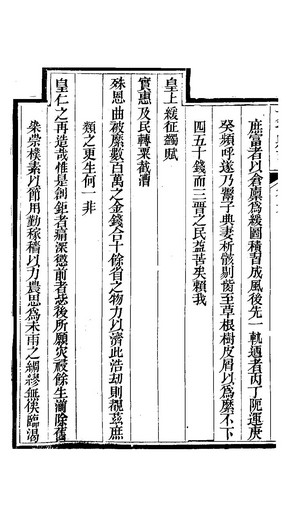 庶富者以倉廩爲緩圖積習成風後先一軌迺者丙丁阨運庚
癸頻呼遂乃鬻子典妻析骸剔齒至草根樹皮屑以爲縻不下
四五十錢而三晋之民益苦矣賴我
皇上緩征蠲賦
實惠及民轉粟截漕
殊恩曲被縻數百萬之金錢合十餘省之物力以濟此浩劫則覩茲庶
類之更生何一非
皇仁之再造哉惟是創鉅者痛深懲前者毖後所願灾祲餘生湔除舊
染崇樸素以節用勤稼穡以力農思爲未雨之綢繆無俟臨渴